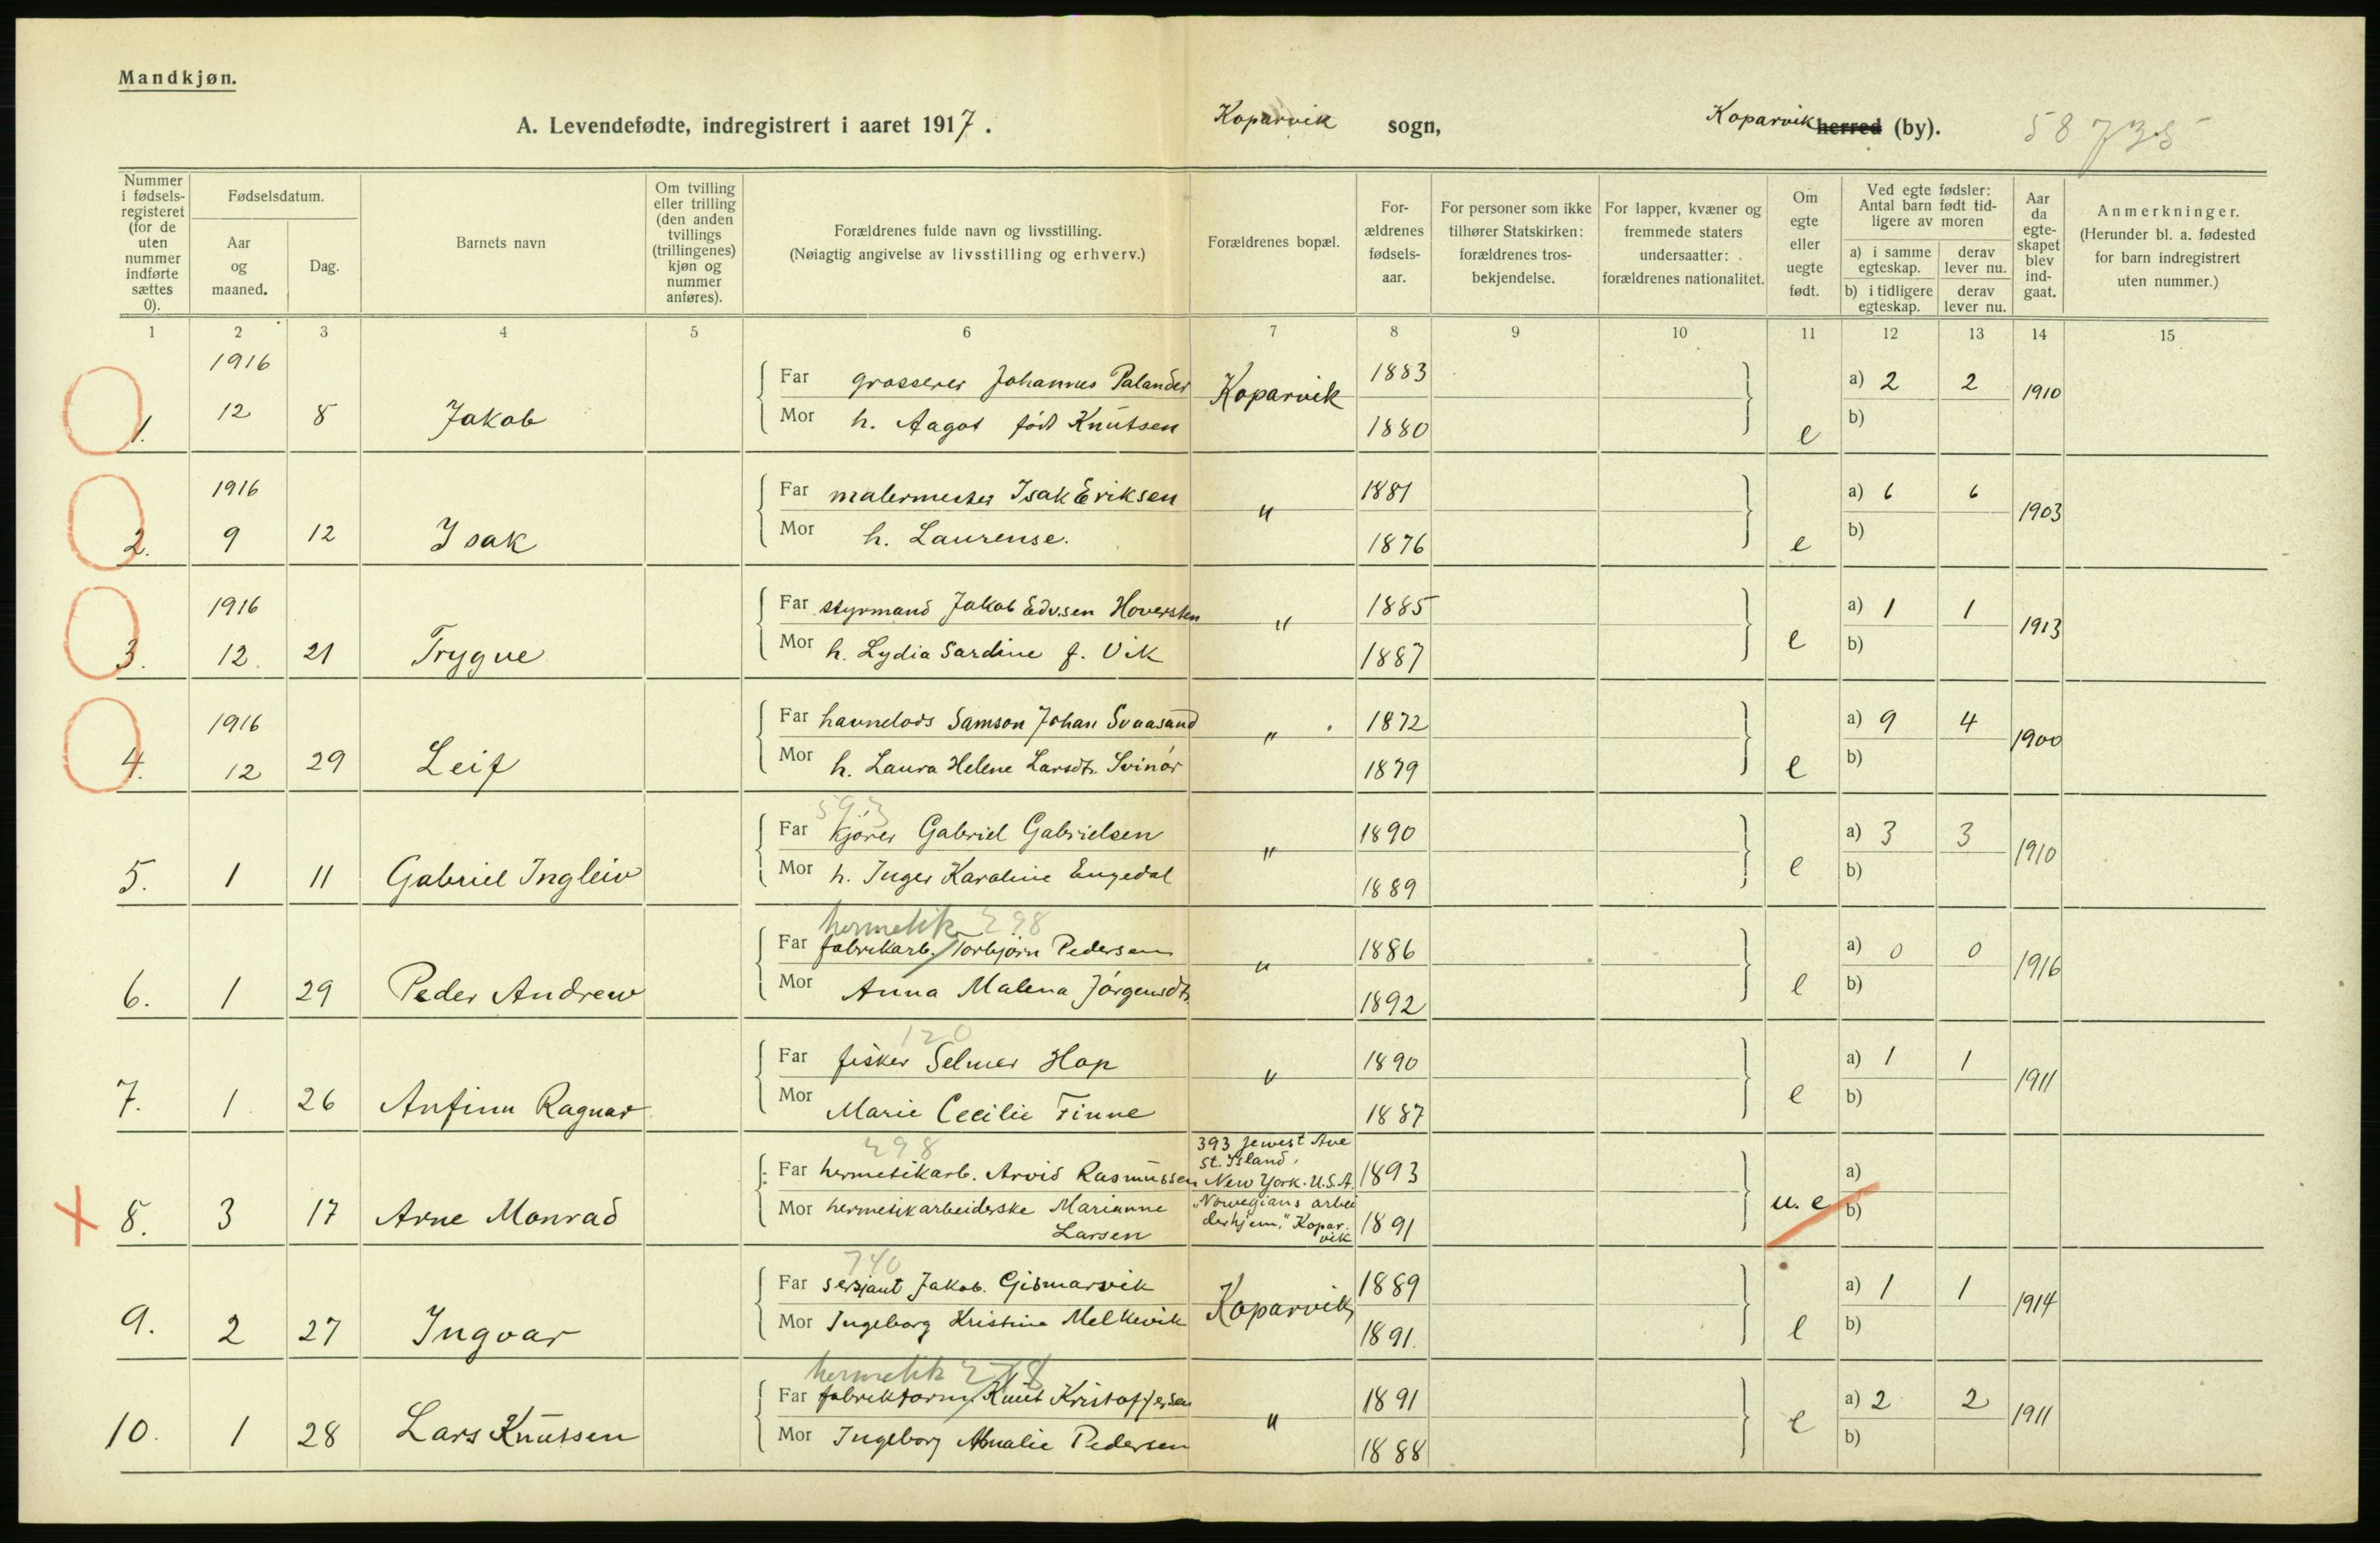 Mandkjøn.
A. Levendefødte, indregistrert i aaret 1917. Koparvik sogn, Koparvik herred (by). 58735
Nummer i fødsels-registeret (for de uten nummer indførte sættes 0).
Fødselsdatum.
Aar og maaned.
Dag.
Barnets navn
Om tvilling eller trilling (den anden tvillings (trillingenes) kjøn og nummer anføres).
Forældrenes fulde navn og livsstilling.
(Nøiagtig angivelse av livsstilling og erhverv.)
Forældrenes bopæl.
For-ældrenes fødsels-aar.
For personer som ikke tilhører Statskirken: forældrenes tros-bekjendelse.
For lapper, kvæner og fremmede staters undersaatter: forældrenes nationalitet.
Om egte eller uegte født.
Ved egte fødsler: Antal barn født tid-ligere av moren
a) i samme egteskap.
derav lever nu.
b) i tidligere egteskap.
derav lever nu.
Aar da egte-skapet blev ind-gaat.
Anmerkninger.
(Herunder bl. a. fødested for barn indregistrert uten nummer.)
1 2 3 4 5 6 7 8 9 10 11 12 13 14 15
1916
Far grosserer Johannes Palander Koparvik 1883 a) 2 2 1910
1. 12 8 Jakob Mor h. Aagot født Knutsen 1880 e b)
1916
Far malermester Isak Eriksen " 1881 a) 6 6 1903
2. 9 12 Isak Mor h. Laurense. 1876 e b)
1916
Far styrmand Jakob Edv.sen Hoversten " 1885 a) 1 1 1913
3. 12. 21 Trygve Mor h. Lydia Sardine f. Vik 1887 e b)
1916
Far havnelods Samson Johan Svaasand " 1872 a) 9 4 1900
4. 12 29 Leif Mor h. Laura Helene Larsdtr. Svinør 1879 e b)
593
Far kjører Gabriel Gabrielsen " 1890 a) 3 3 1910
5. 1 11 Gabriel Ingleiv Mor h. Inger Karoline Engedal 1889 e b)
hermetik 298
Far fabrikarb. Torbjørn Pedersen " 1886 a) 0 0 1916
6. 1 29 Peder Andrew Mor Anna Malena Jørgensdtr. 1892 e b)
120
Far fisker Selmer Hop " 1890 a) 1 1 1911
7. 1 26 Anfinn Ragnar Mor Marie Cecilie Finne 1887 e b)
298
393 Jewest Ave
St. Island,
Far hermetikarb. Arvid Rasmussen New York. U.S.A. 1893 a)
8. 3 17 Arne Monrad Mor hermetikarbeiderske Marianne Larsen "Norwegians arbeiderhjem," Koparvik 1891 u. e b)
740
Far sersjant Jakob. Gismarvik Koparvik 1889 a) 1 1 1914
9. 2 27 Ingvar Mor Ingeborg Kristine Melkevik 1891. e b)
hermetik 298
Far fabrikform. Knut Kristoffersen " 1891 a) 2 2 1911
10. 1 28 Lars Knutsen Mor Ingeborg Amalie Pedersen 1888 e b)